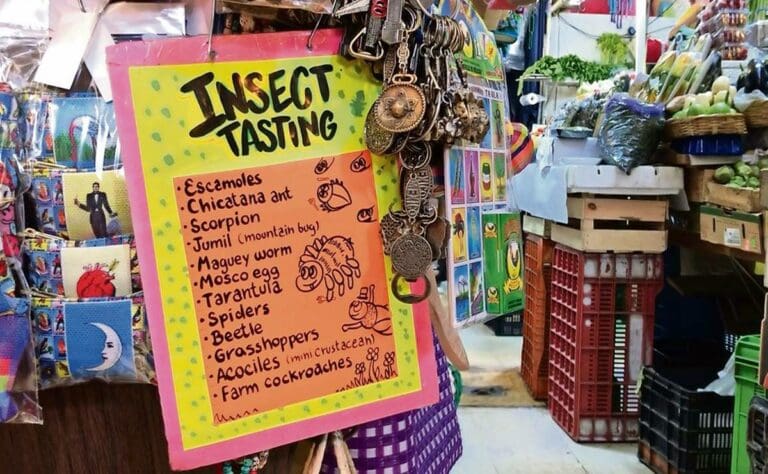 INSECT
TASTING
· Escamoles
· Chicatana ant
· Scorpion
· Jumil (mountain bug)
· Maguey worm
· Mosco egg
· Tarantula
· Spiders
· Beetle
· Grasshoppers
· Acociles (mini crustacean)
· Farm cockroaches